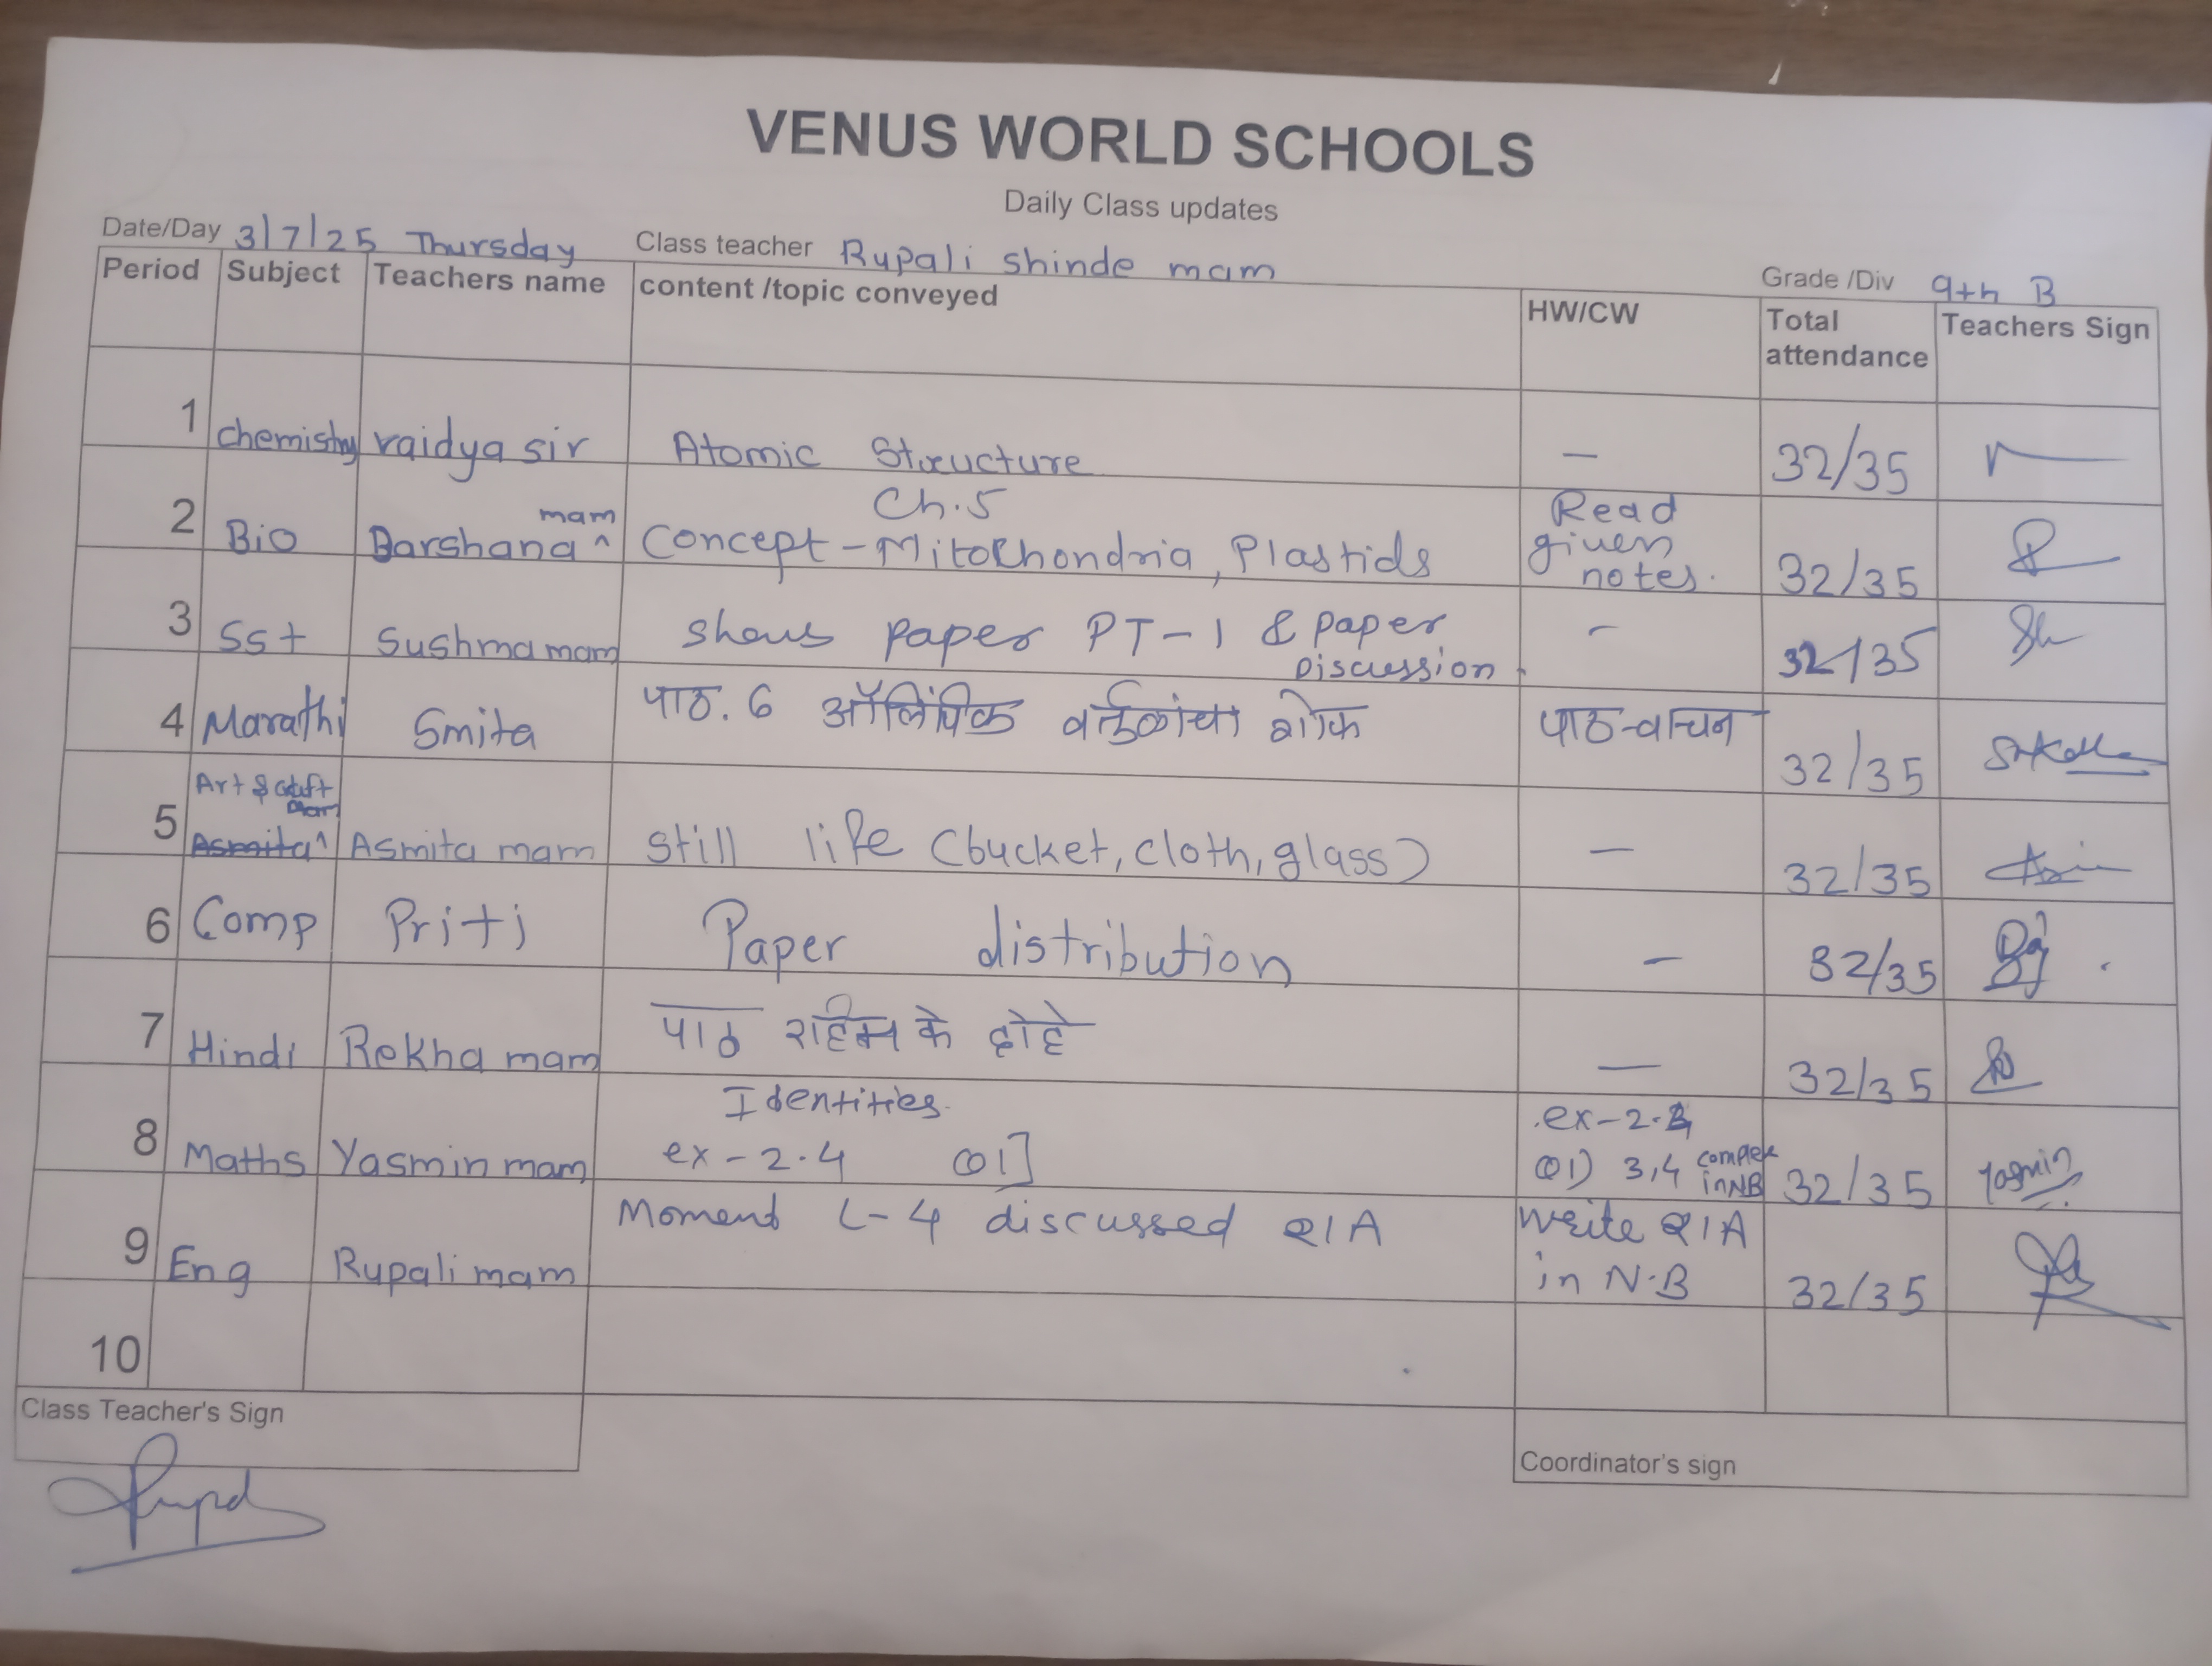 VENUS WORLD SCHOOLS
Daily Class updates
Date/Day 3/7/25 Thursday Class teacher Rupali shinde mam Grade /Div 9th B
Period Subject Teachers name content /topic conveyed HW/CW Total attendance Teachers Sign
1 chemistry vaidya sir Atomic Structure — 32/35
2 Bio Darshana mam Ch.5
Concept - Mitochondria, Plastids Read given notes. 32/35
3 Sst Sushma mam shows paper PT-1 & paper
Discussion. - 32/35
4 Marathi Smita पाठ. 6 ऑलिंपिक वर्तुळांचा गोफ पाठ-वाचन 32/35
5 Art & craft Asmita mam still life (bucket, cloth, glass) — 32/35
6 Comp Priti Paper distribution - 32/35
7 Hindi Rekha mam पाठ रहिम के दोहे — 32/35
8 Maths Yasmin mam Identities.
ex-2.4 Q1] ex-2.4
Q1) 3,4 in NB 32/35 Yasmin
9 Eng Rupali mam Moment L-4 discussed Q/A Write Q/A
in N.B 32/35
10
Class Teacher's Sign
Coordinator's sign